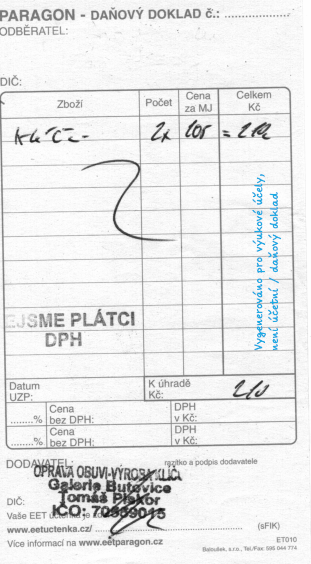 PARAGON - DAŇOVÝ DOKLAD č.: ..................
ODBĚRATEL:
DIČ:
Zboží Počet Cena za MJ Celkem Kč
Klíče 2x 105 = 210
Vygenerováno pro výukové účely,
není účetní / daňový doklad
EJSME PLÁTCI
DPH
Datum
UZP:
K úhradě
Kč: 210
........% Cena bez DPH: DPH v Kč:
........% Cena bez DPH: DPH v Kč:
DODAVATEL: razítko a podpis dodavatele
OPRAVA OBUVI-VÝROBA KLÍČŮ
Galerie Butovice
Tomáš
DIČ: IČO:
Vaše EET účtenka je
www.eetuctenka.cz/ (sFIK)
Více informací na www.eetparagon.cz ET010
Baloušek, s.r.o., Tel./Fax 596 044 774